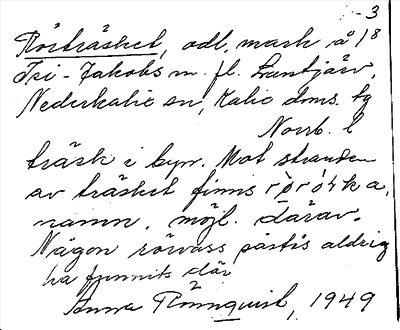 -3
Rörträsket, odl. mark å 18
Fri-Jakobs m. fl. Lantjärv,
Nederkalix sn, Kalix doms. tg
Norrb. l
träsk i byn. Mot stranden
av träsket finns
namn, möjl. därav.
Någon rörvass påstås aldrig
ha funnits där
Anna Rönnquist, 1949